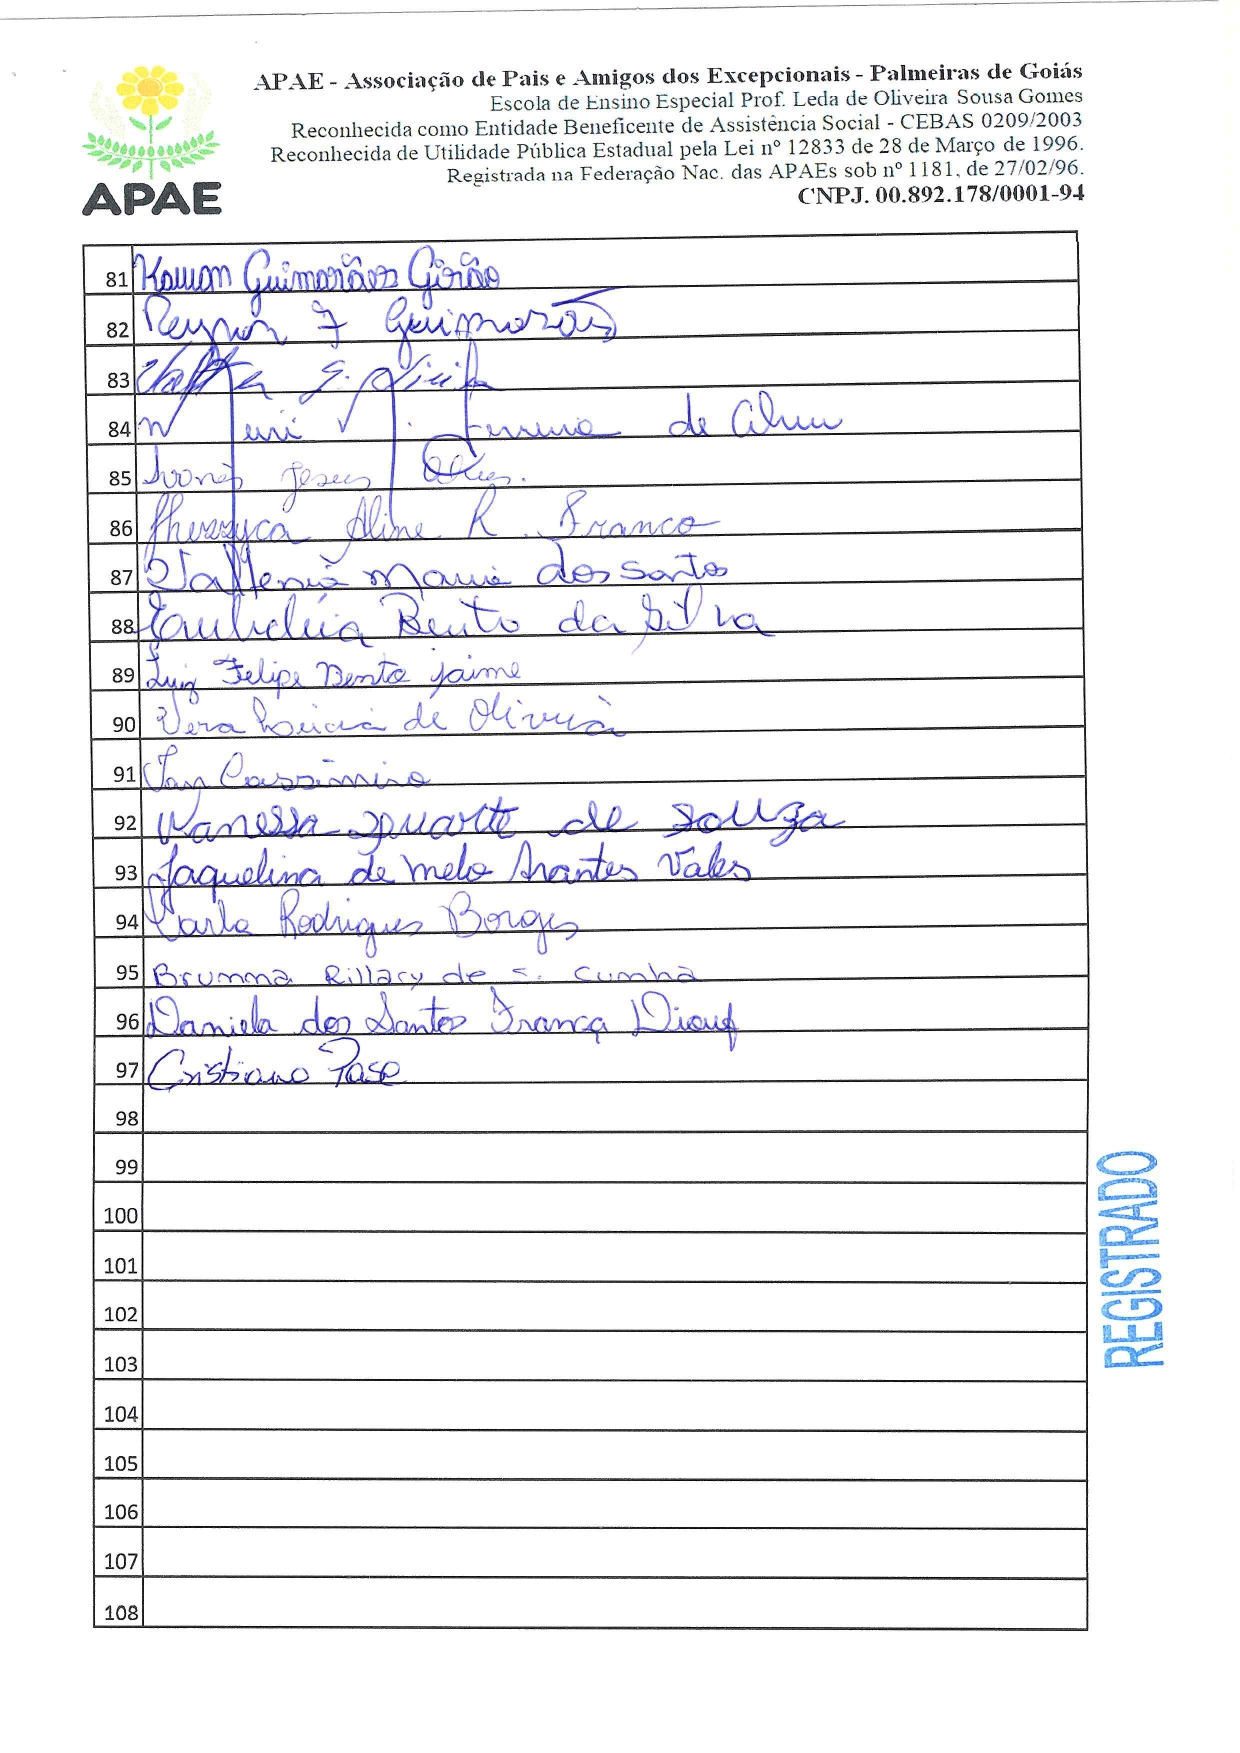 APAE - Associação de Pais e Amigos dos Excepcionais - Palmeiras de Goiás
Escola de Ensino Especial Prof. Leda de Oliveira Sousa Gomes
Reconhecida como Entidade Beneficente de Assistência Social - CEBAS 0209/2003
Reconhecida de Utilidade Pública Estadual pela Lei nº 12833 de 28 de Março de 1996.
Registrada na Federação Nac. das APAEs sob nº 1181, de 27/02/96.
CNPJ. 00.892.178/0001-94
APAE
81 Kauam Guimarães Girão
82 Guimarães
83
84 Ferreira de
85 Jesus
86 Aline R. Franco
87 Maria dos Santos
88 Bento da Silva
89 Luiz Felipe Bento Jaime
90 Vera Lúcia de Oliveira
91 Cassimiro
92 Wanessa Duarte de Souza
93 Jaquelina de Melo Arantes Vales
94 Carla Rodrigues Borges
95 Brumma Rillary de S. Cunha
96 Daniela dos Santos França Diouf
97 Cristiano Pase
98
99
100
101
102
103
104
105
106
107
108
REGISTRADO